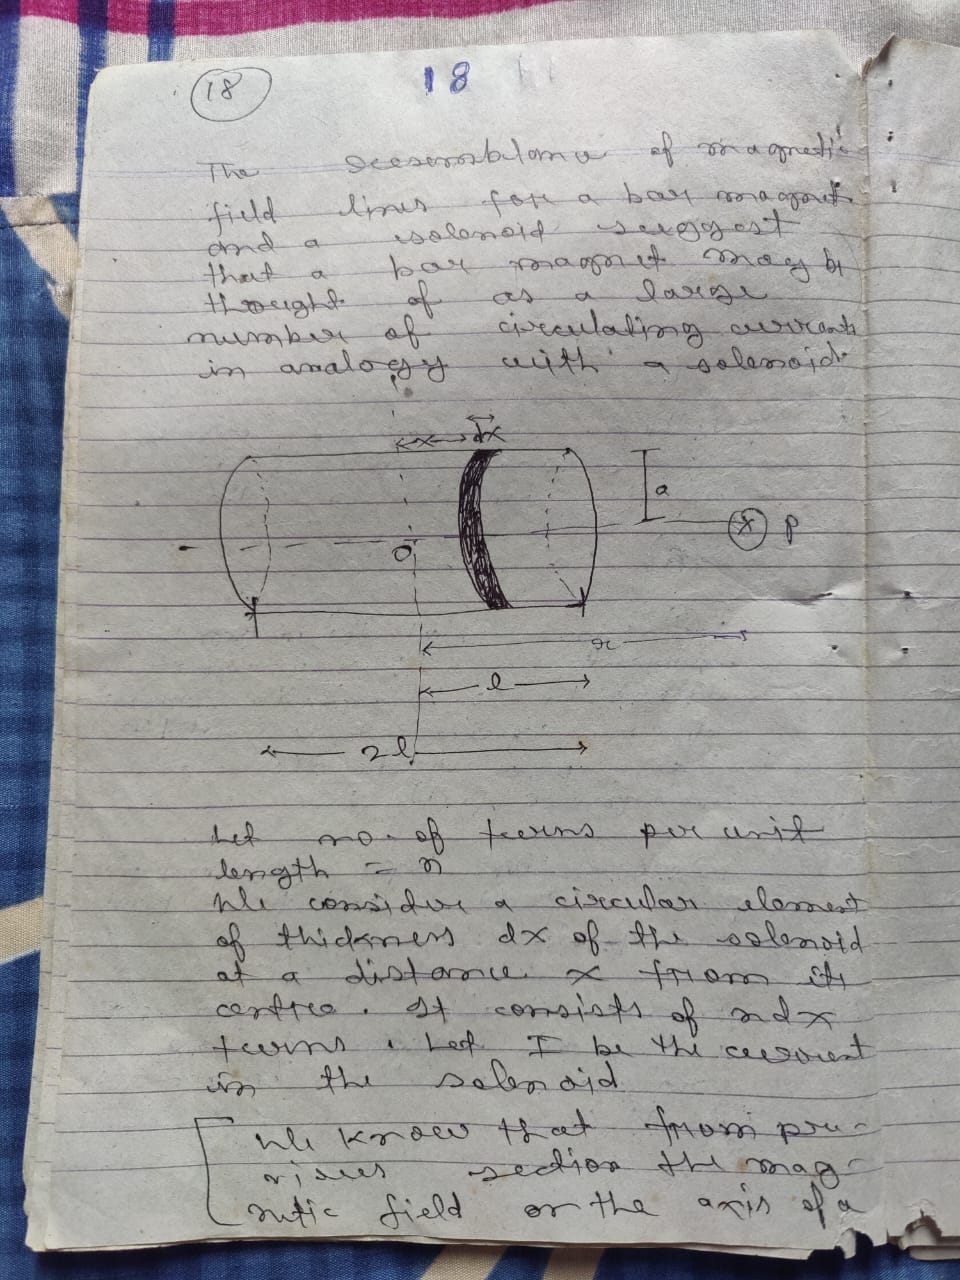 18
18
The resemblance of magnetic
field lines for a bar magnet
and a solenoid suggest
that a bar magnet may be
thought of as a large
number of circulating currents
in analogy with a solenoid.
x dx
a
O
P
r
l
2l
Let no. of turns per unit
length = n
We consider a circular element
of thickness dx of the solenoid
at a distance x from its
centre. It consists of ndx
turns. Let I be the current
in the solenoid
We know that from pre-
vious section the mag-
netic field on the axis of a